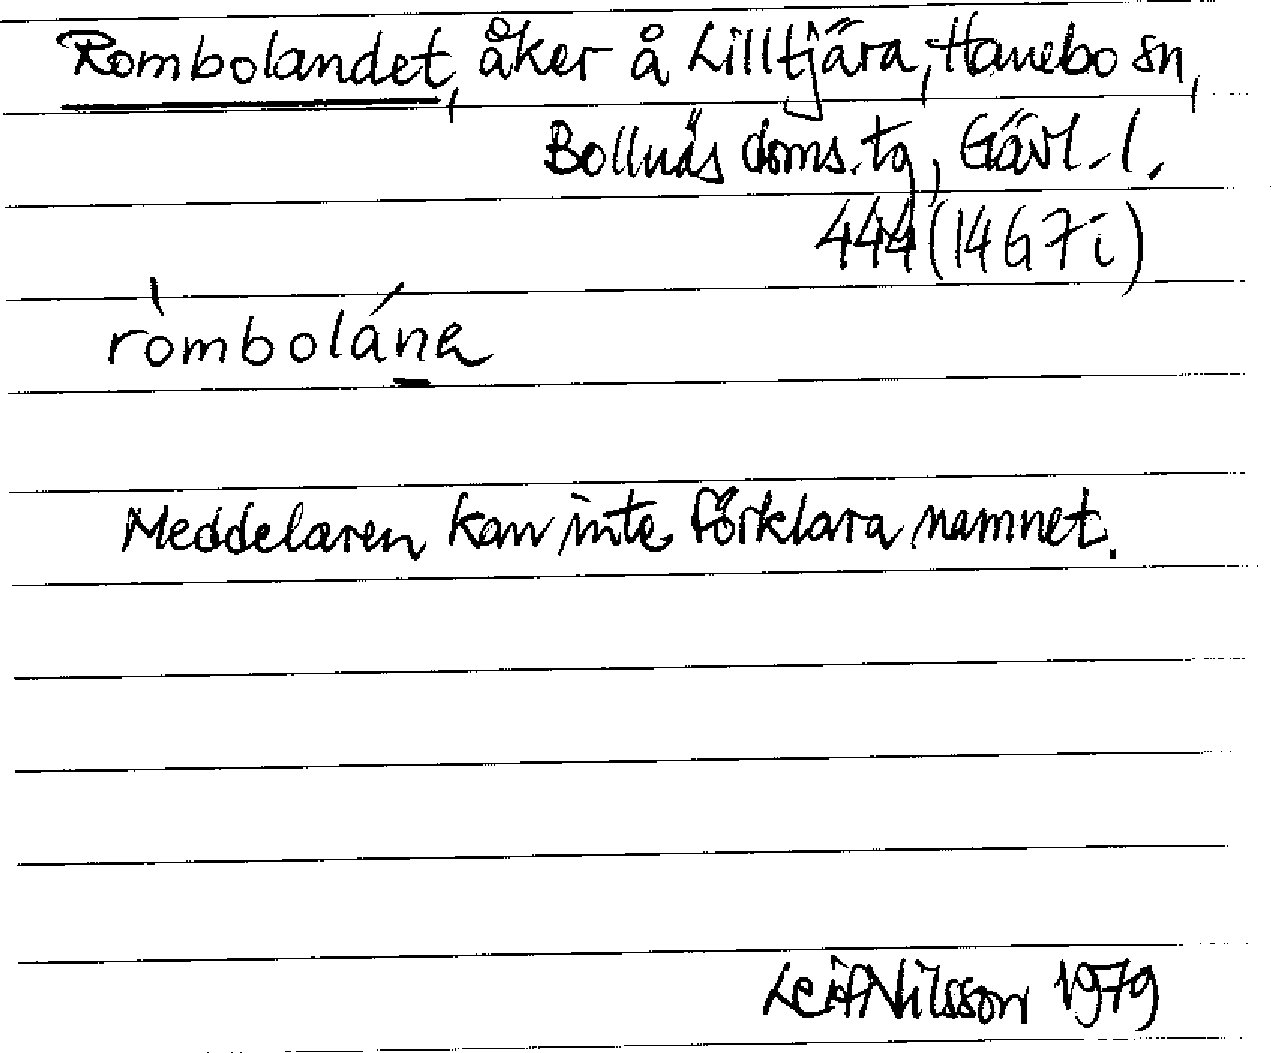 Rombolandet, åker å Lilltjära, Hanebo sn,
Bollnäs doms.tg, Gävl. l.
444 (14G7i)
ròmbolána
Meddelaren kan inte förklara namnet.
Leif Nilsson 1979